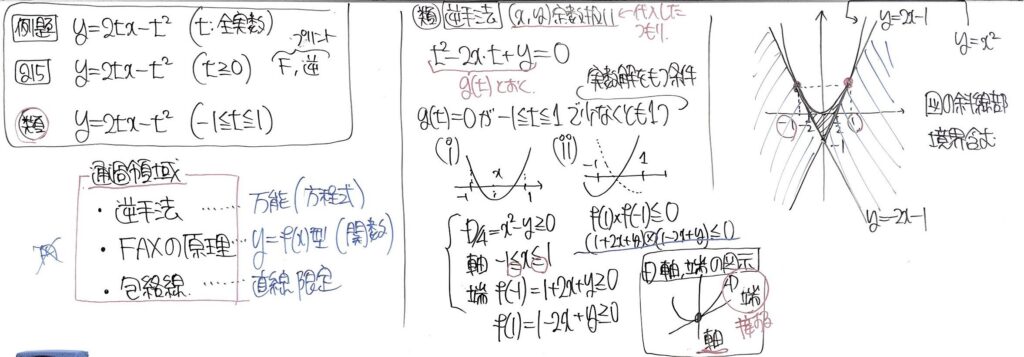 例題 y=2tx-t² (t:全実数)
Q15 y=2tx-t² (t≧0)
プリント
F,逆
類 y=2tx-t² (-1≦t≦1)
通過領域
・逆手法 …… 万能(方程式)
・FAXの原理… y=f(x)型(関数)
・包絡線 …… 直線限定
類 逆手法 (x,y)定数扱い ←代入したつもり.
t²-2x·t+y=0
g(t)とおく
実数解をもつ条件
g(t)=0が-1≦t≦1で少なくとも1つ
(i)
x
-1
1
(ii)
1
D/4=x²-y≧0
軸 -1≦x≦1
端 f(-1)=1+2x+y≧0
f(1)=1-2x+y≧0
f(1)×f(-1)≦0
(1+2x+y)(1-2x+y)≦0
D,軸,端の図示
D
端
軸
y=2x-1
y=x²
-1
1
-1
図の斜線部
境界含む
y=-2x-1